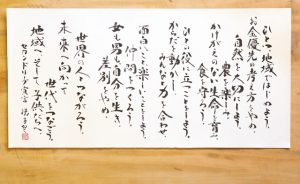 ひとつ、地域ではじめよう。
お金優先の考え方をやめ
自然と人を大切にしよう。
農を楽しみ
かけがえのない生命を育み、
食を守ろう。
ひとの役に立つことをしよう。
からだを動かし
みんなの力を合わせ
面白いことを楽しいことをしよう。
仲間をつくろう。
女も男も自分を生き、
差別をやめ
世界の人とつながろう。
世代をつなごう
未来へ向かって
地域へそして子供たちへ。
セカンドリーグ宣言